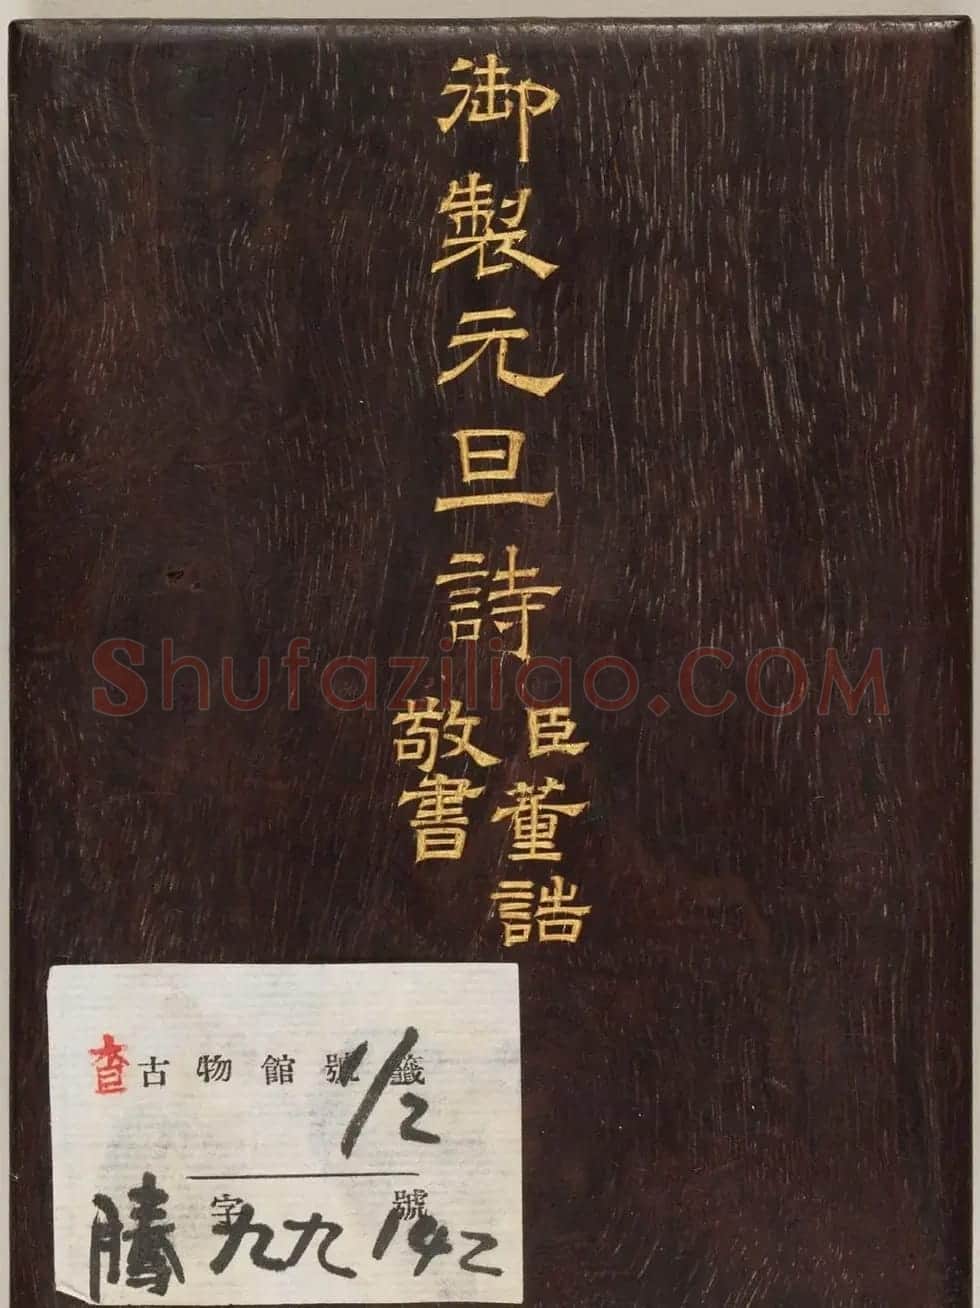 御製元旦詩
臣董誥
敬書
Shufaziliao.COM
查
古物館號籤
1/2
字 號
騰 九九 142